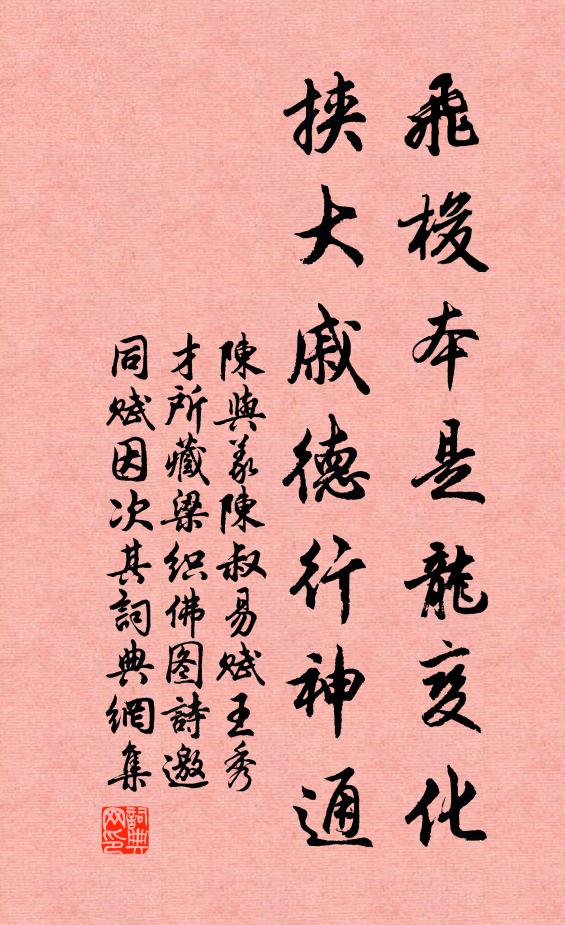 飛梭本是龍变化
挟大戚德行神通
陳與義陳叔易賦王秀
才所藏梁织佛图詩邀
同赋因次其詞典網集
詞典網印